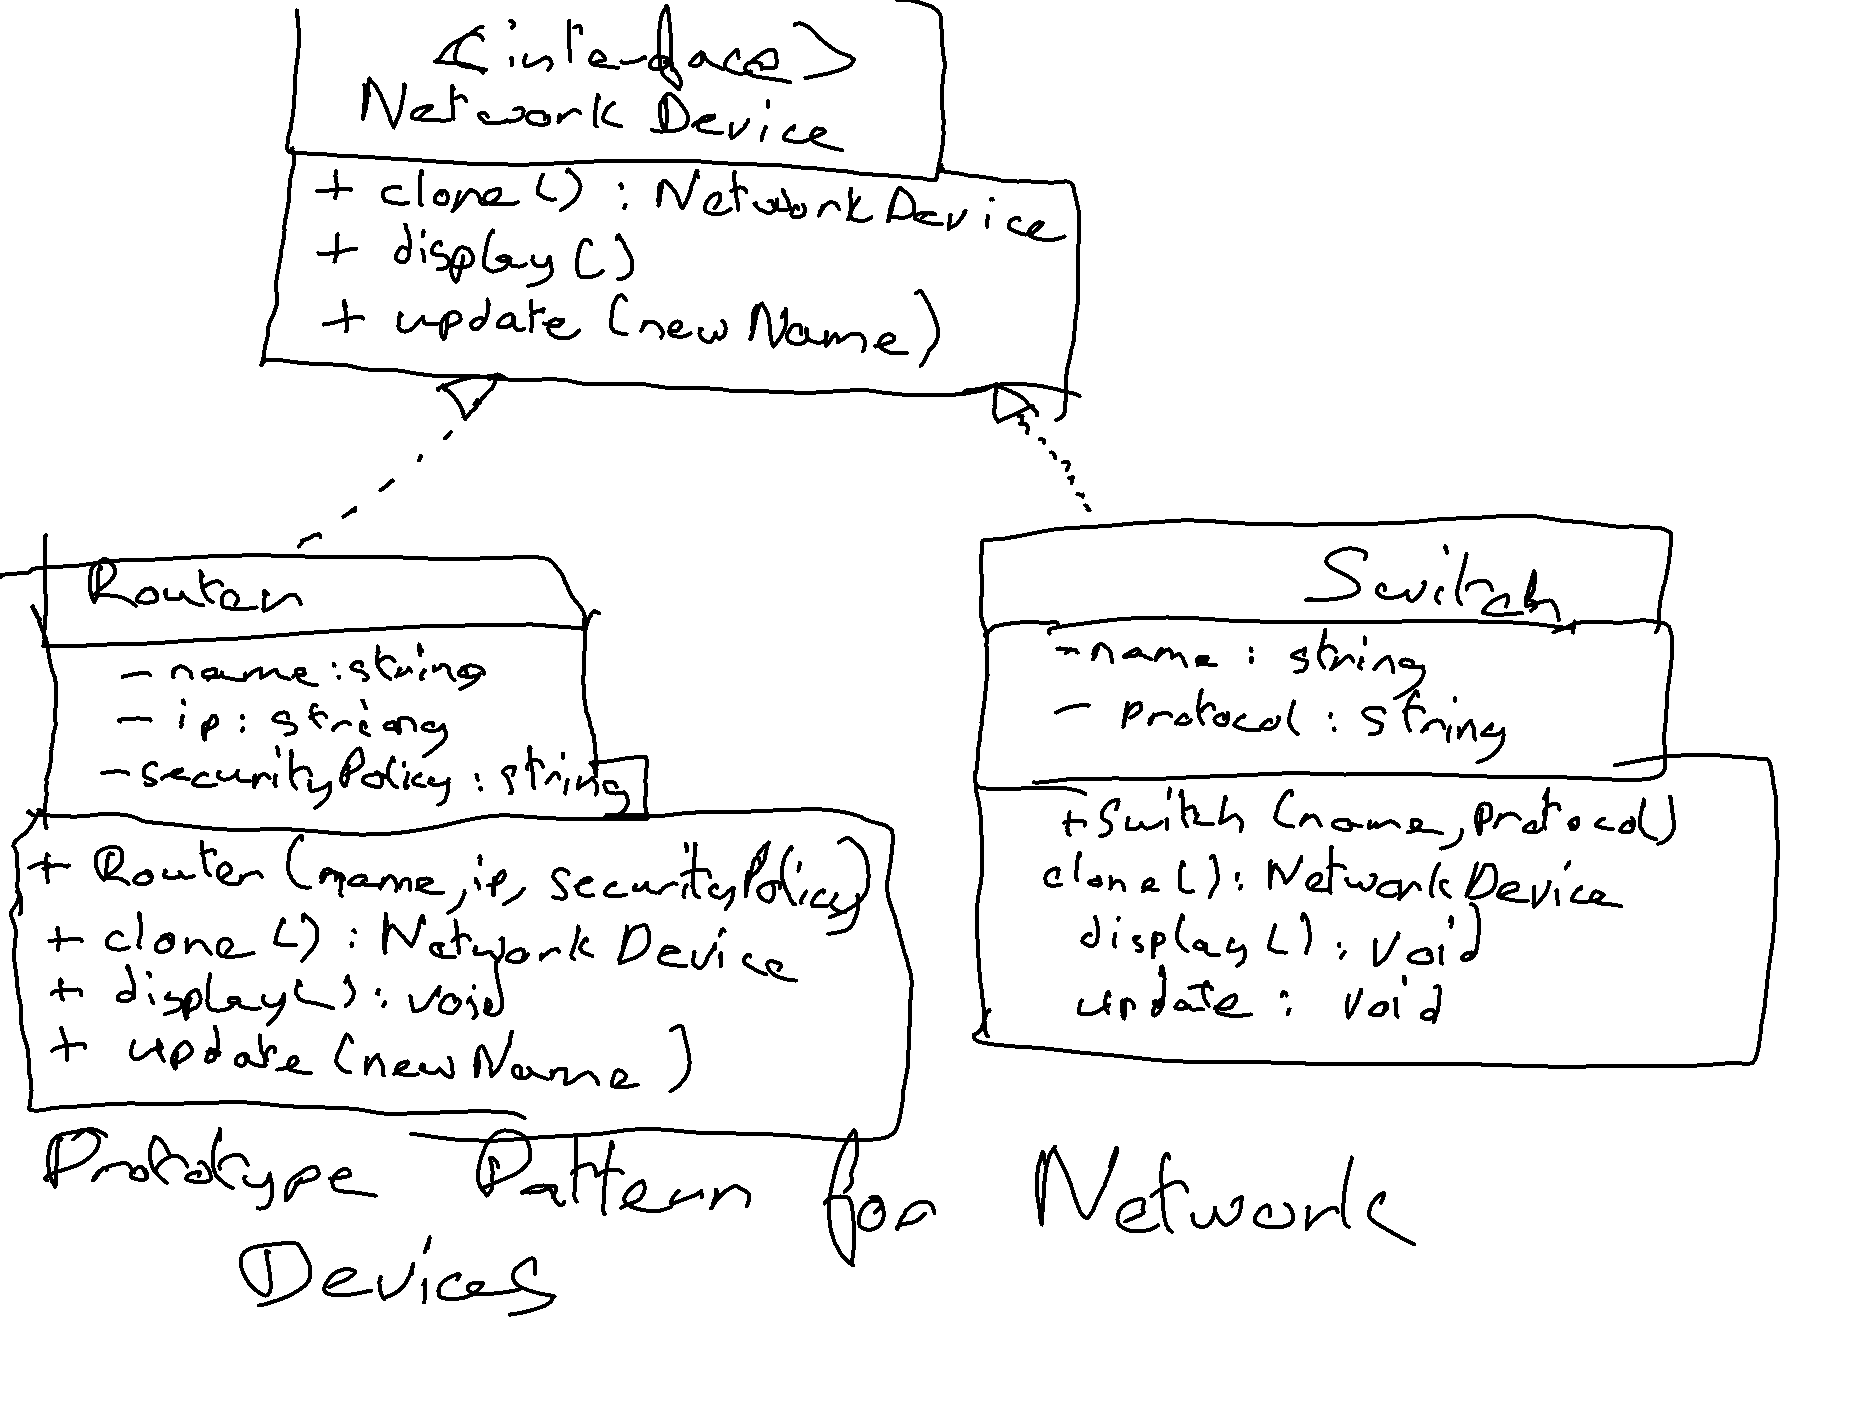 <interface>
Network Device
+ clone() : NetworkDevice
+ display()
+ update (newName)
Router
- name : string
- ip : string
- securityPolicy : string
+ Router (name, ip, securityPolicy)
+ clone() : Network Device
+ display() : void
+ update (newName)
Switch
- name : string
- protocol : string
+ Switch (name, protocol)
clone() : Network Device
display() : void
update : void
Prototype Pattern for Network
Devices